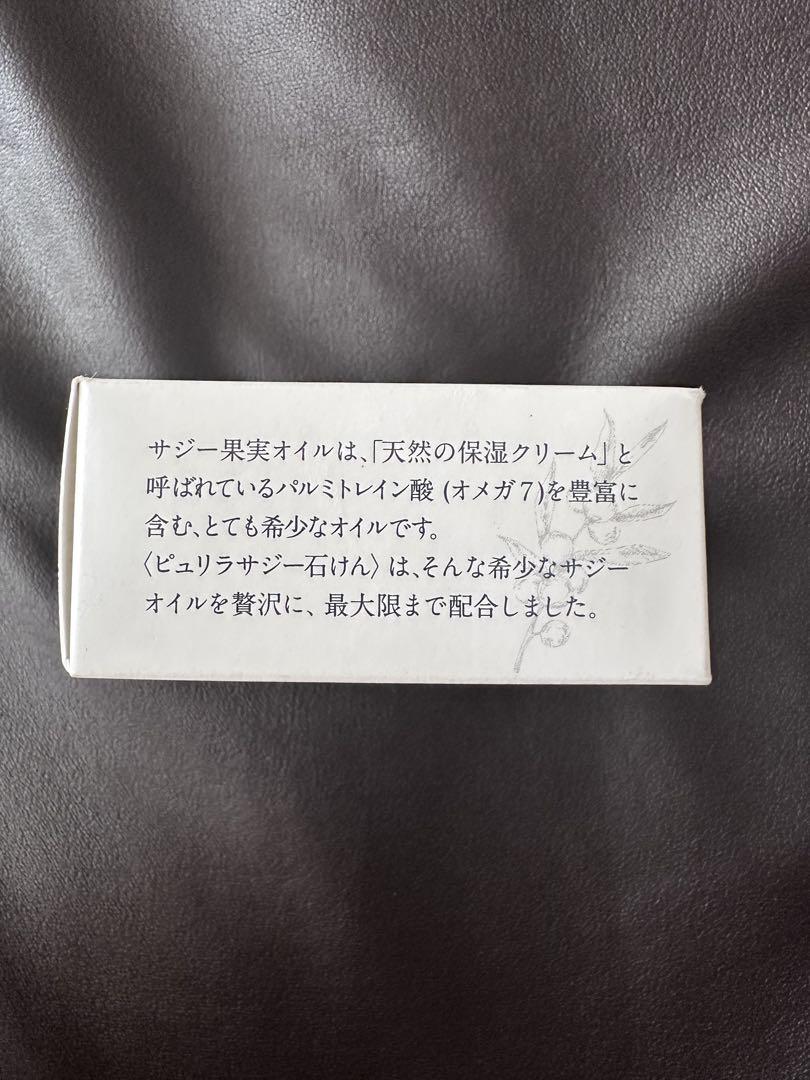 サジー果実オイルは、「天然の保湿クリーム」と
呼ばれているパルミトレイン酸 (オメガ7)を豊富に
含む、とても希少なオイルです。
〈ピュリラサジー石けん〉は、そんな希少なサジー
オイルを贅沢に、最大限まで配合しました。